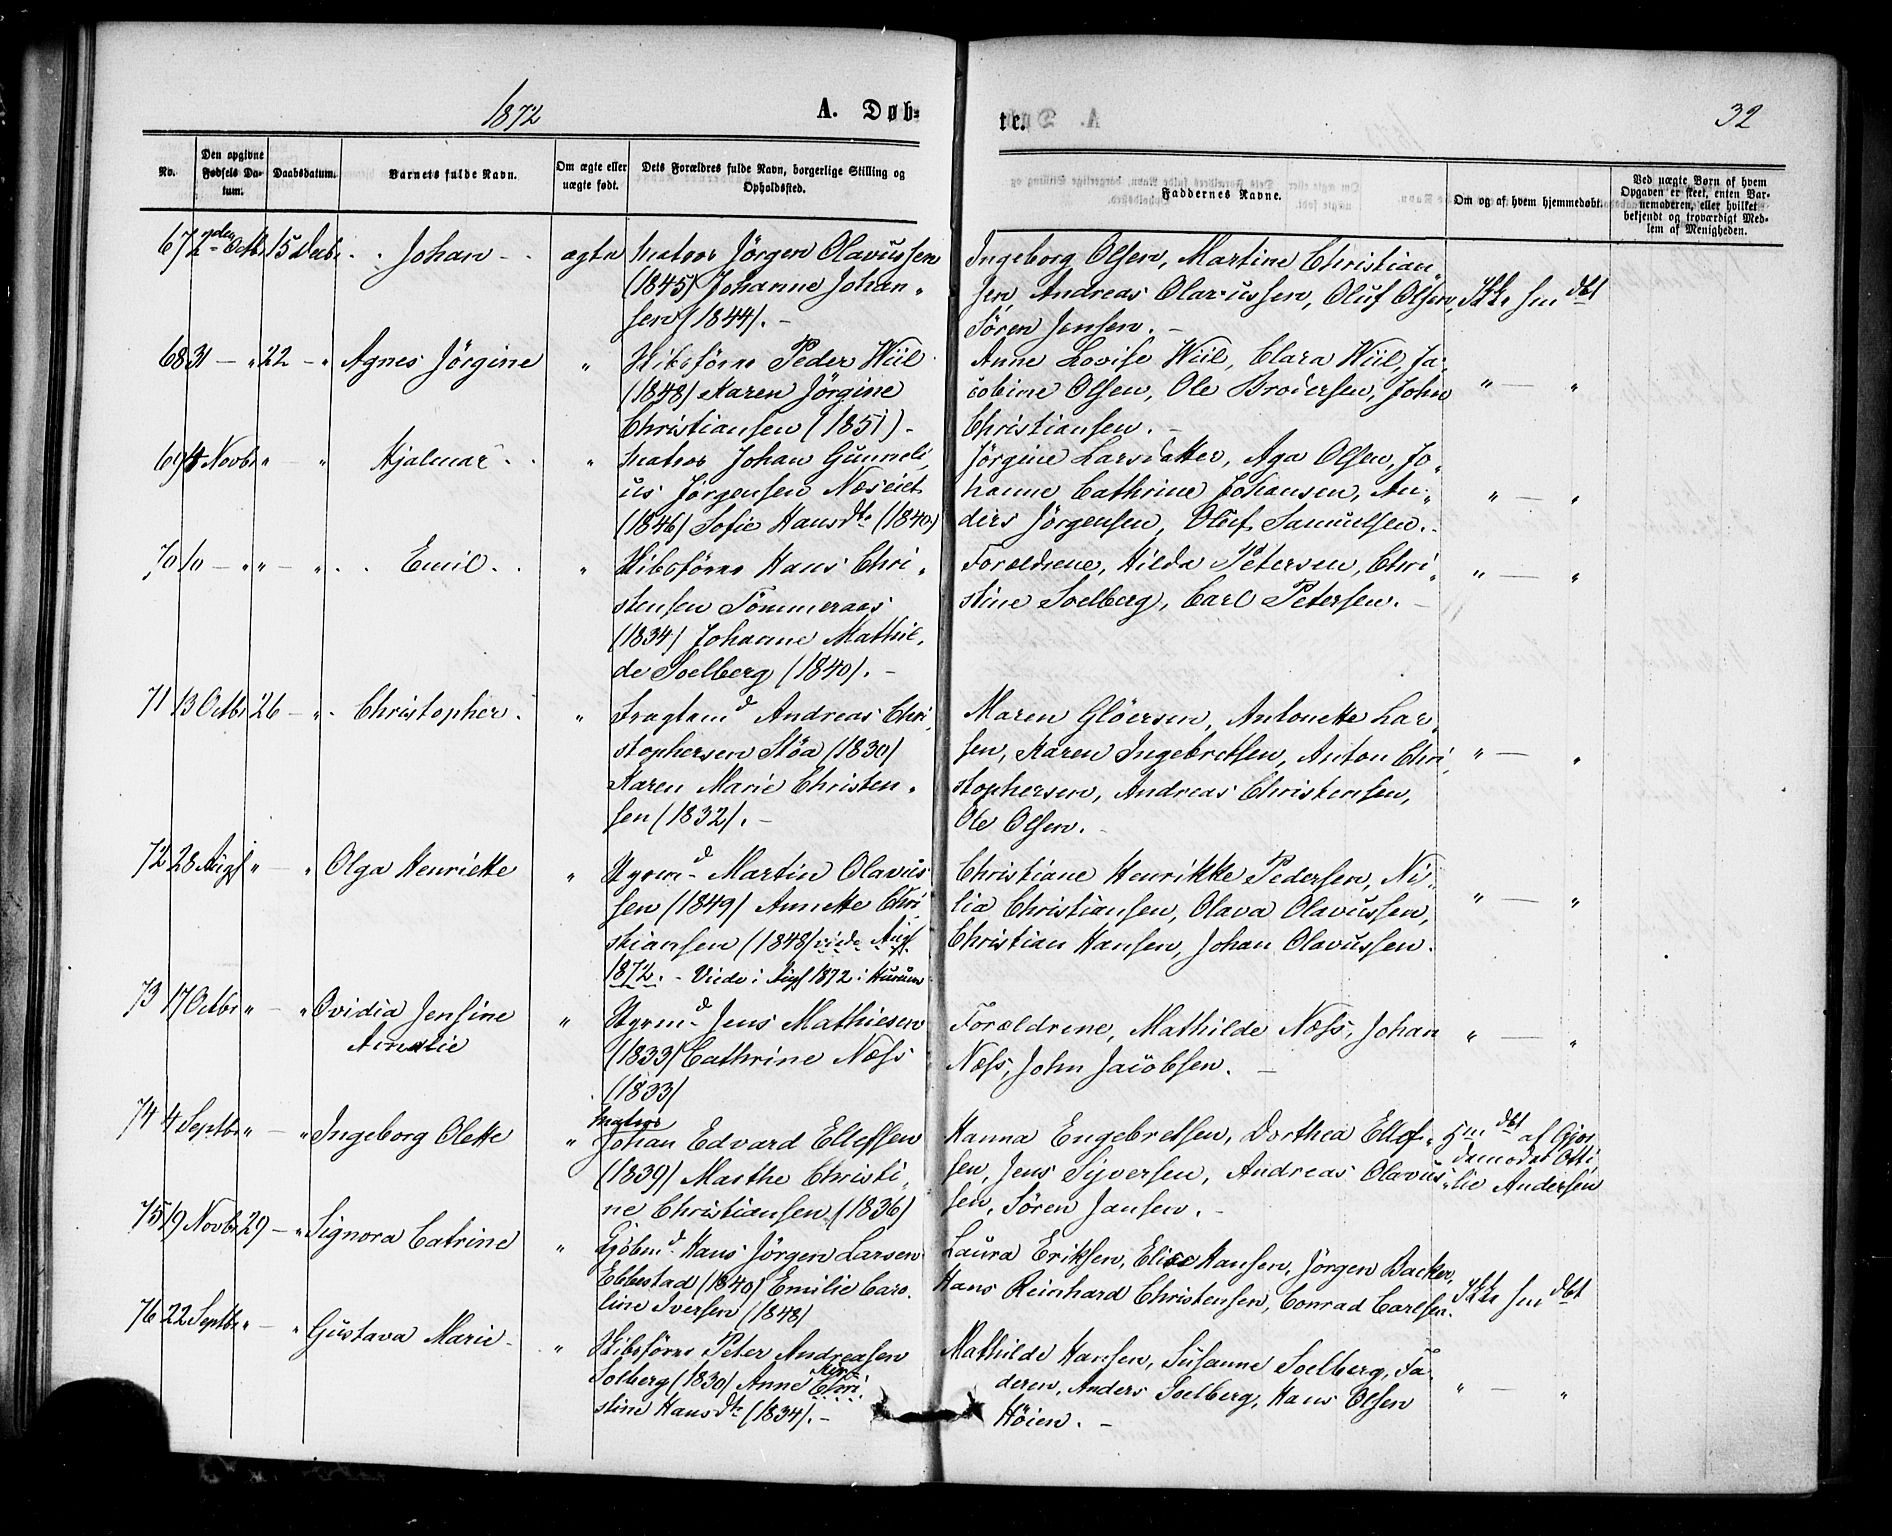 1872
A. Døb-
te.
32
No.
Den opgivne Fødsels Da-
tum.
Daabsdatum.
Barnets fulde Navn.
Om ægte eller
uægte født.
Dets Forældres fulde Navn, borgerlige Stilling og
Opholdssted.
Faddernes Navne.
Om og af hvem hjemmedøbt.
Ved uægte Børn af hvem
Opgaven er skeet, enten Bar-
nemoderen, eller hvilket
bekjendt og troværdigt Med-
lem af Menigheden.
67 2den Octbr 15 Decbr. Johan - ægte Matros Jörgen Olavussen
(1845) Johanne Johan-
sen (1844). -
Ingeborg Olsen, Martine Christian-
sen, Andreas Olavussen, Oluf Olsen, Ikke hm dbt
Sören Jensen. -
68 31 - " 22 - " Agnes Jörgine " Skibsförer Peder Wiil
(1848) Karen Jörgine
Christiansen (1851) -
Anne Lovise Wiil, Clara Wiil, Ja-
cobine Olsen, Ole Brodersen, John " — "
Christiansen. -
69 4 Novbr " - " Hjalmar " Matros Johan Gunneli-
us Jörgensen Næseiet
(1846) Sofie Hansdtr (1840)
Jörgine Larsdatter, Aga Olsen, Jo-
hanne Cathrine Johansen, An- " — "
ders Jörgensen, Oluf Samuelsen. -
70 10 - " " - " Emil. " Skibsförer Hans Chri-
stensen Tömmeraas
(1834) Johanne Mathil-
de Soelberg (1840). -
Forældrene, Hilda Petersen, Chri- " — "
stine Soelberg, Carl Petersen. -
71 13 Octbr 26 - " Christopher. " Fragtmd Andreas Chri-
stophersen Stöa (1830)
Karen Marie Christen-
sen (1832). -
Maren Glöersen, Antonette Lar-
sen, Karen Ingebretsen, Anton Chri- " — "
stophersen, Andreas Christensen,
Ole Olsen. -
72 28 Augs " - " Olga Henriette " Styrmd Martin Olavus
sen (1849) Annette Chri-
stiansen (1848) viede Augs
1872. - Viede i Augs 1872 i Hurum
Christiane Henrikke Pedersen, Ni-
lia Christiansen, Olava Olavussen, " — "
Christian Hansen, Johan Olavussen.
73 17 Octbr " - " Ovidia Jensine
Amalie " Styrmd Jens Mathiesen
(1833) Cathrine Næss
(1833)
Forældrene, Mathilde Næss, Johan " — "
Næss, John Jacobsen. -
74 4 Septbr " - " Ingeborg Olette " Matros
Johan Edvard Ellefsen
(1839) Marthe Christi-
ne Christiansen (1836)
Hanna Engebretsen, Dorthea Ellef- hm dbt af Gjor
sen, Jens Syversen, Andreas Olavus- demodet Otti-
sen, Sören Jansen. - lie Andersen
75 19 Novbr 29 - " Signora Catrine " Kjöbmd Hans Jörgen Larsen
Ebbestad (1840) Emilie Caro-
line Iversen (1848)
Laura Eriksen, Elise Hansen, Jörgen Backer,
Hans Reinhard Christensen, Conrad Carlsen. Ikke hm dbt
76 22 Septbr " - " Gustava Marie - " Skibsförer Peter Andreasen
Solberg (1830) Anne Chri-
stine Hansdtr (1834). -
Mathilde Hansen, Susanne Soelberg, Fa-
deren, Anders Soelberg, Hans Olsen " — "
Höien. -